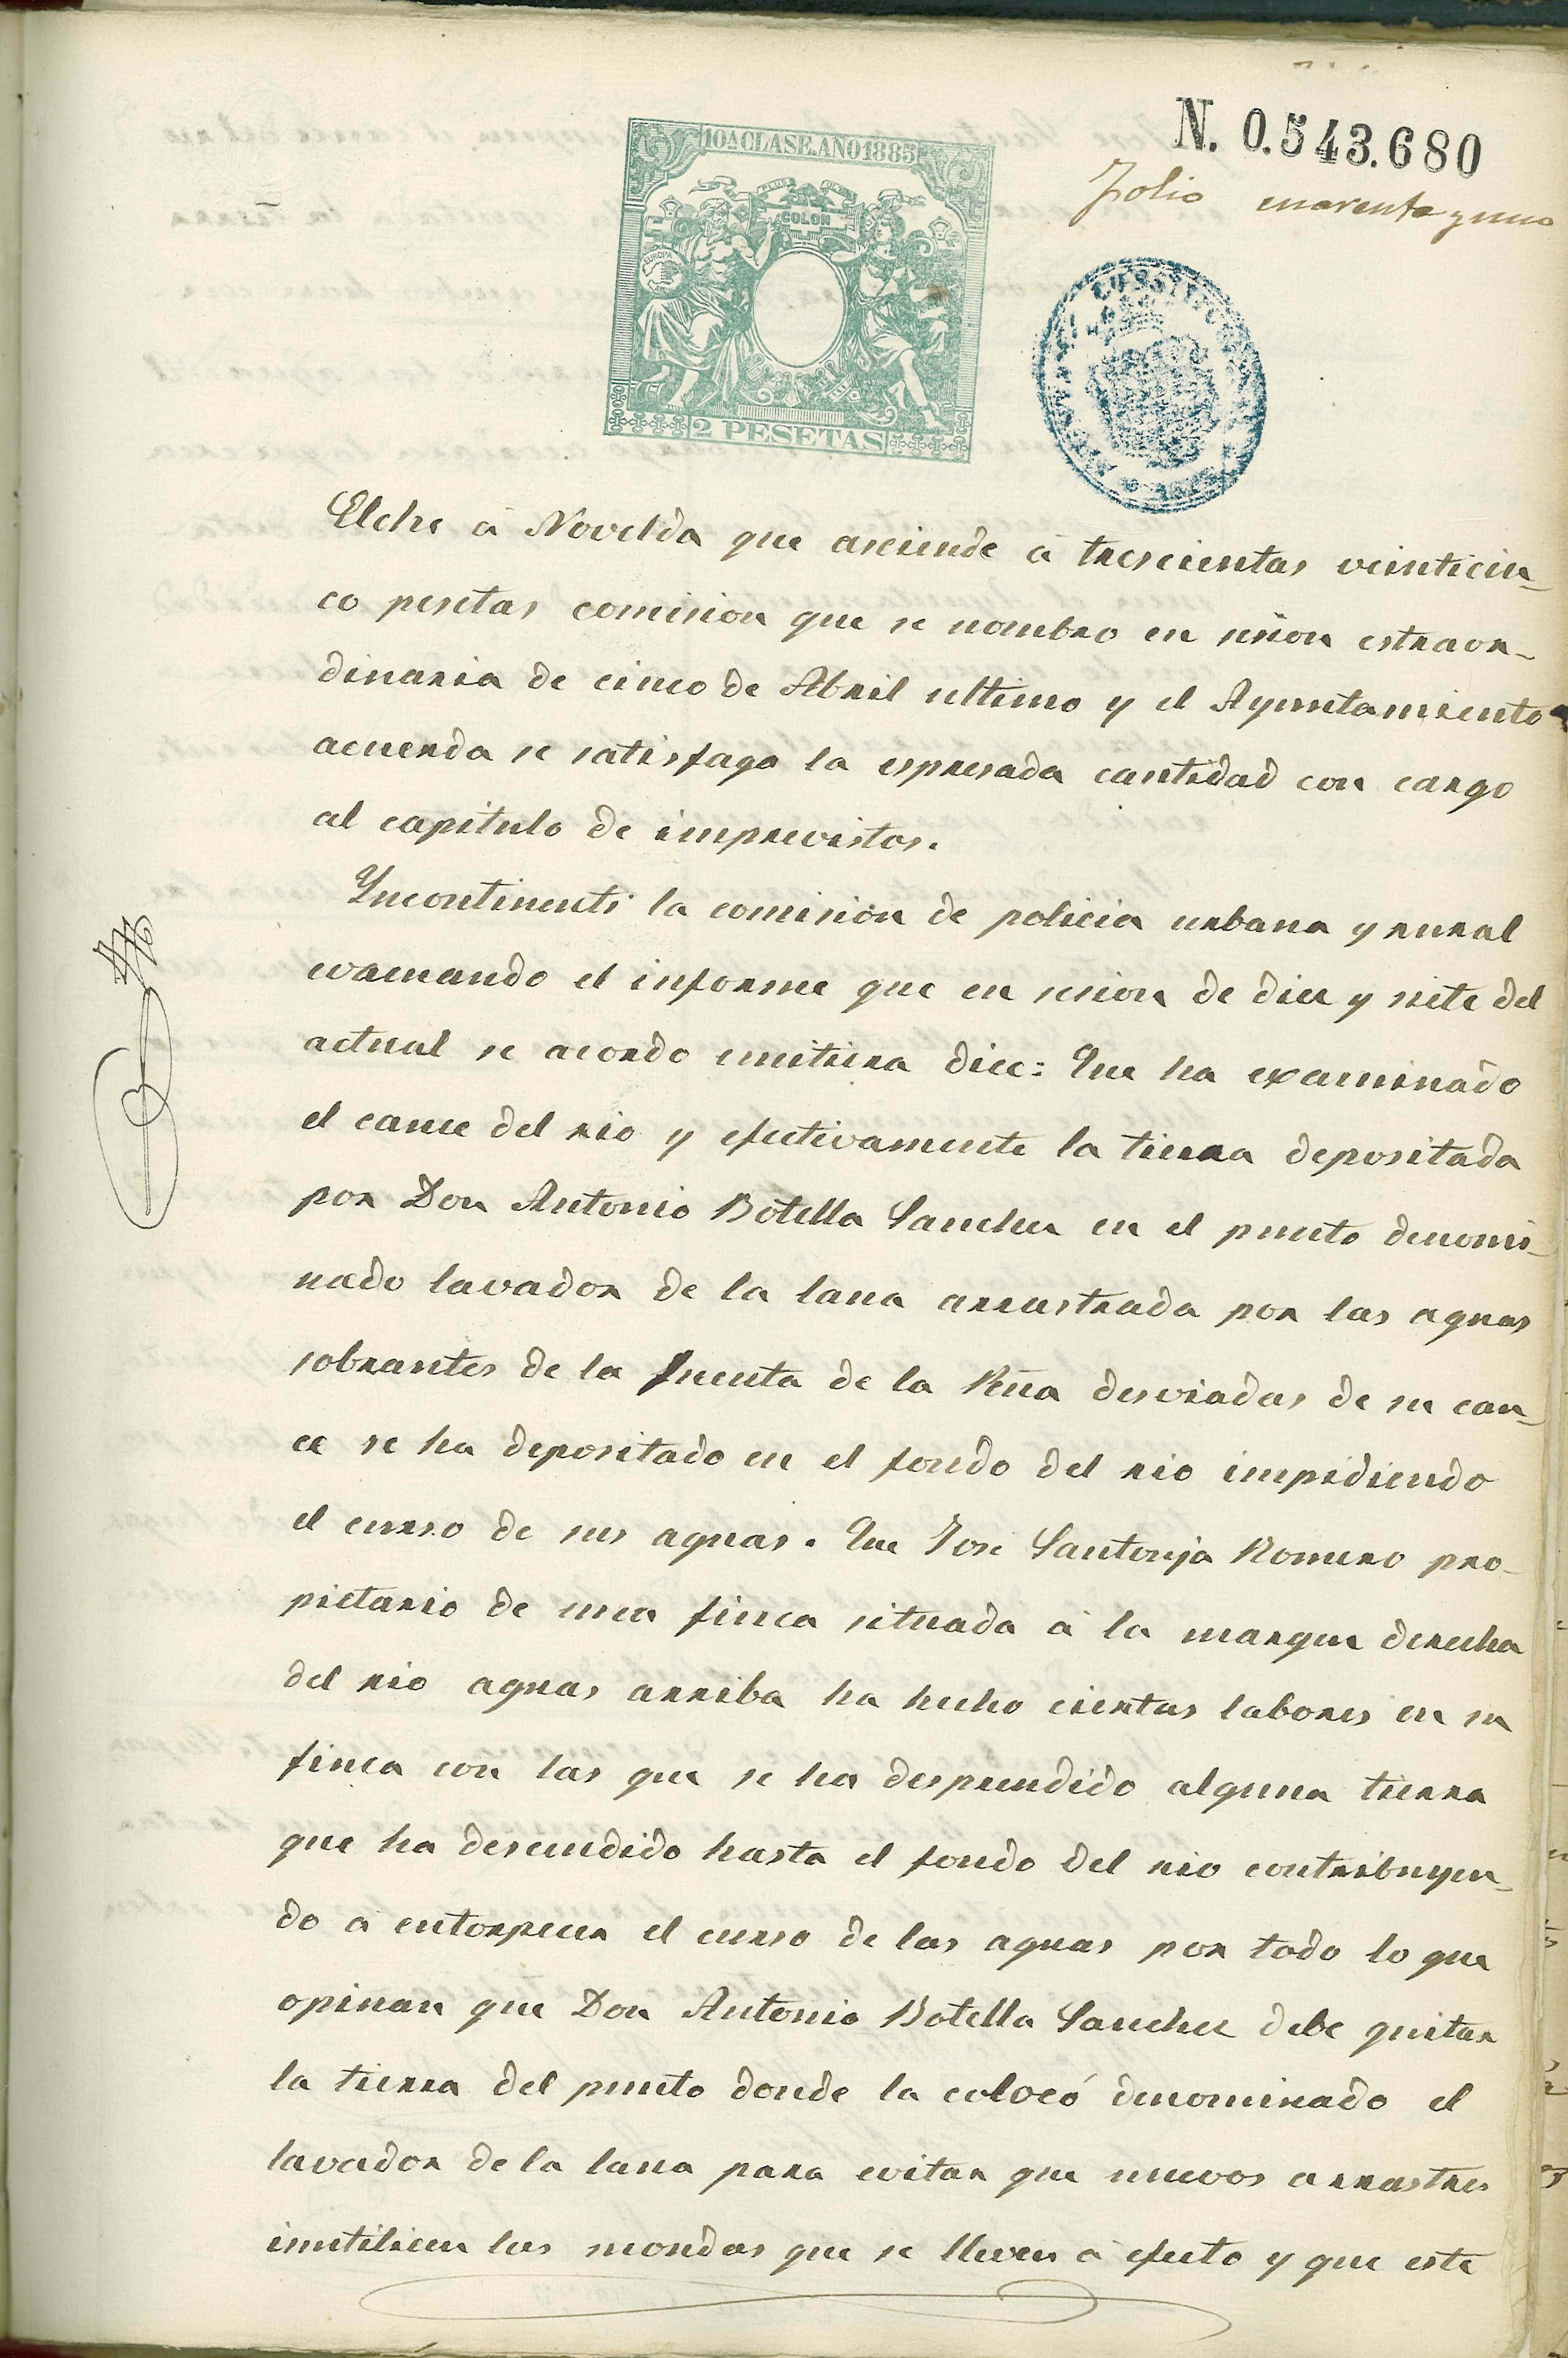 N. 0.543.680
Folio cuarenta y uno
10ª CLASE. AÑO 1885
PLUS ULTRA
COLON
EUROPA
2 PESETAS
Elche á Novelda que asciende á trescientas veinticin-
co pesetas comision que se nombro en sesion estraor-
dinaria de cinco de Abril ultimo y el Ayuntamiento
acuerda se satisfaga la espresada cantidad con cargo
al capitulo de imprevistos.
Yncontinenti la comision de policia urbana y rural
evacuando el informe que en sesion de diez y siete del
actual se acordo emitiera dice: Que ha examinado
el cauce del rio y efectivamente la tierra depositada
por Don Antonio Botella Sanchez en el punto denomi-
nado lavador de la lana arrastrada por las aguas
sobrantes de la fuente de la Peña desviadas de su cau-
ce se ha depositado en el fondo del rio impidiendo
el curso de sus aguas. Que José Santonja Romero pro-
pietario de una finca situada á la margen derecha
del rio aguas arriba ha hecho ciertas labores en su
finca con las que se ha desprendido alguna tierra
que ha descendido hasta el fondo del rio contribuyen-
do á entorpecer el curso de las aguas por todo lo que
opinan que Don Antonio Botella Sanchez debe quitar
la tierra del punto donde la colocó denominado el
lavador de la lana para evitar que nuevos arrastres
inutilicen las mondas que se lleven á efecto y que este